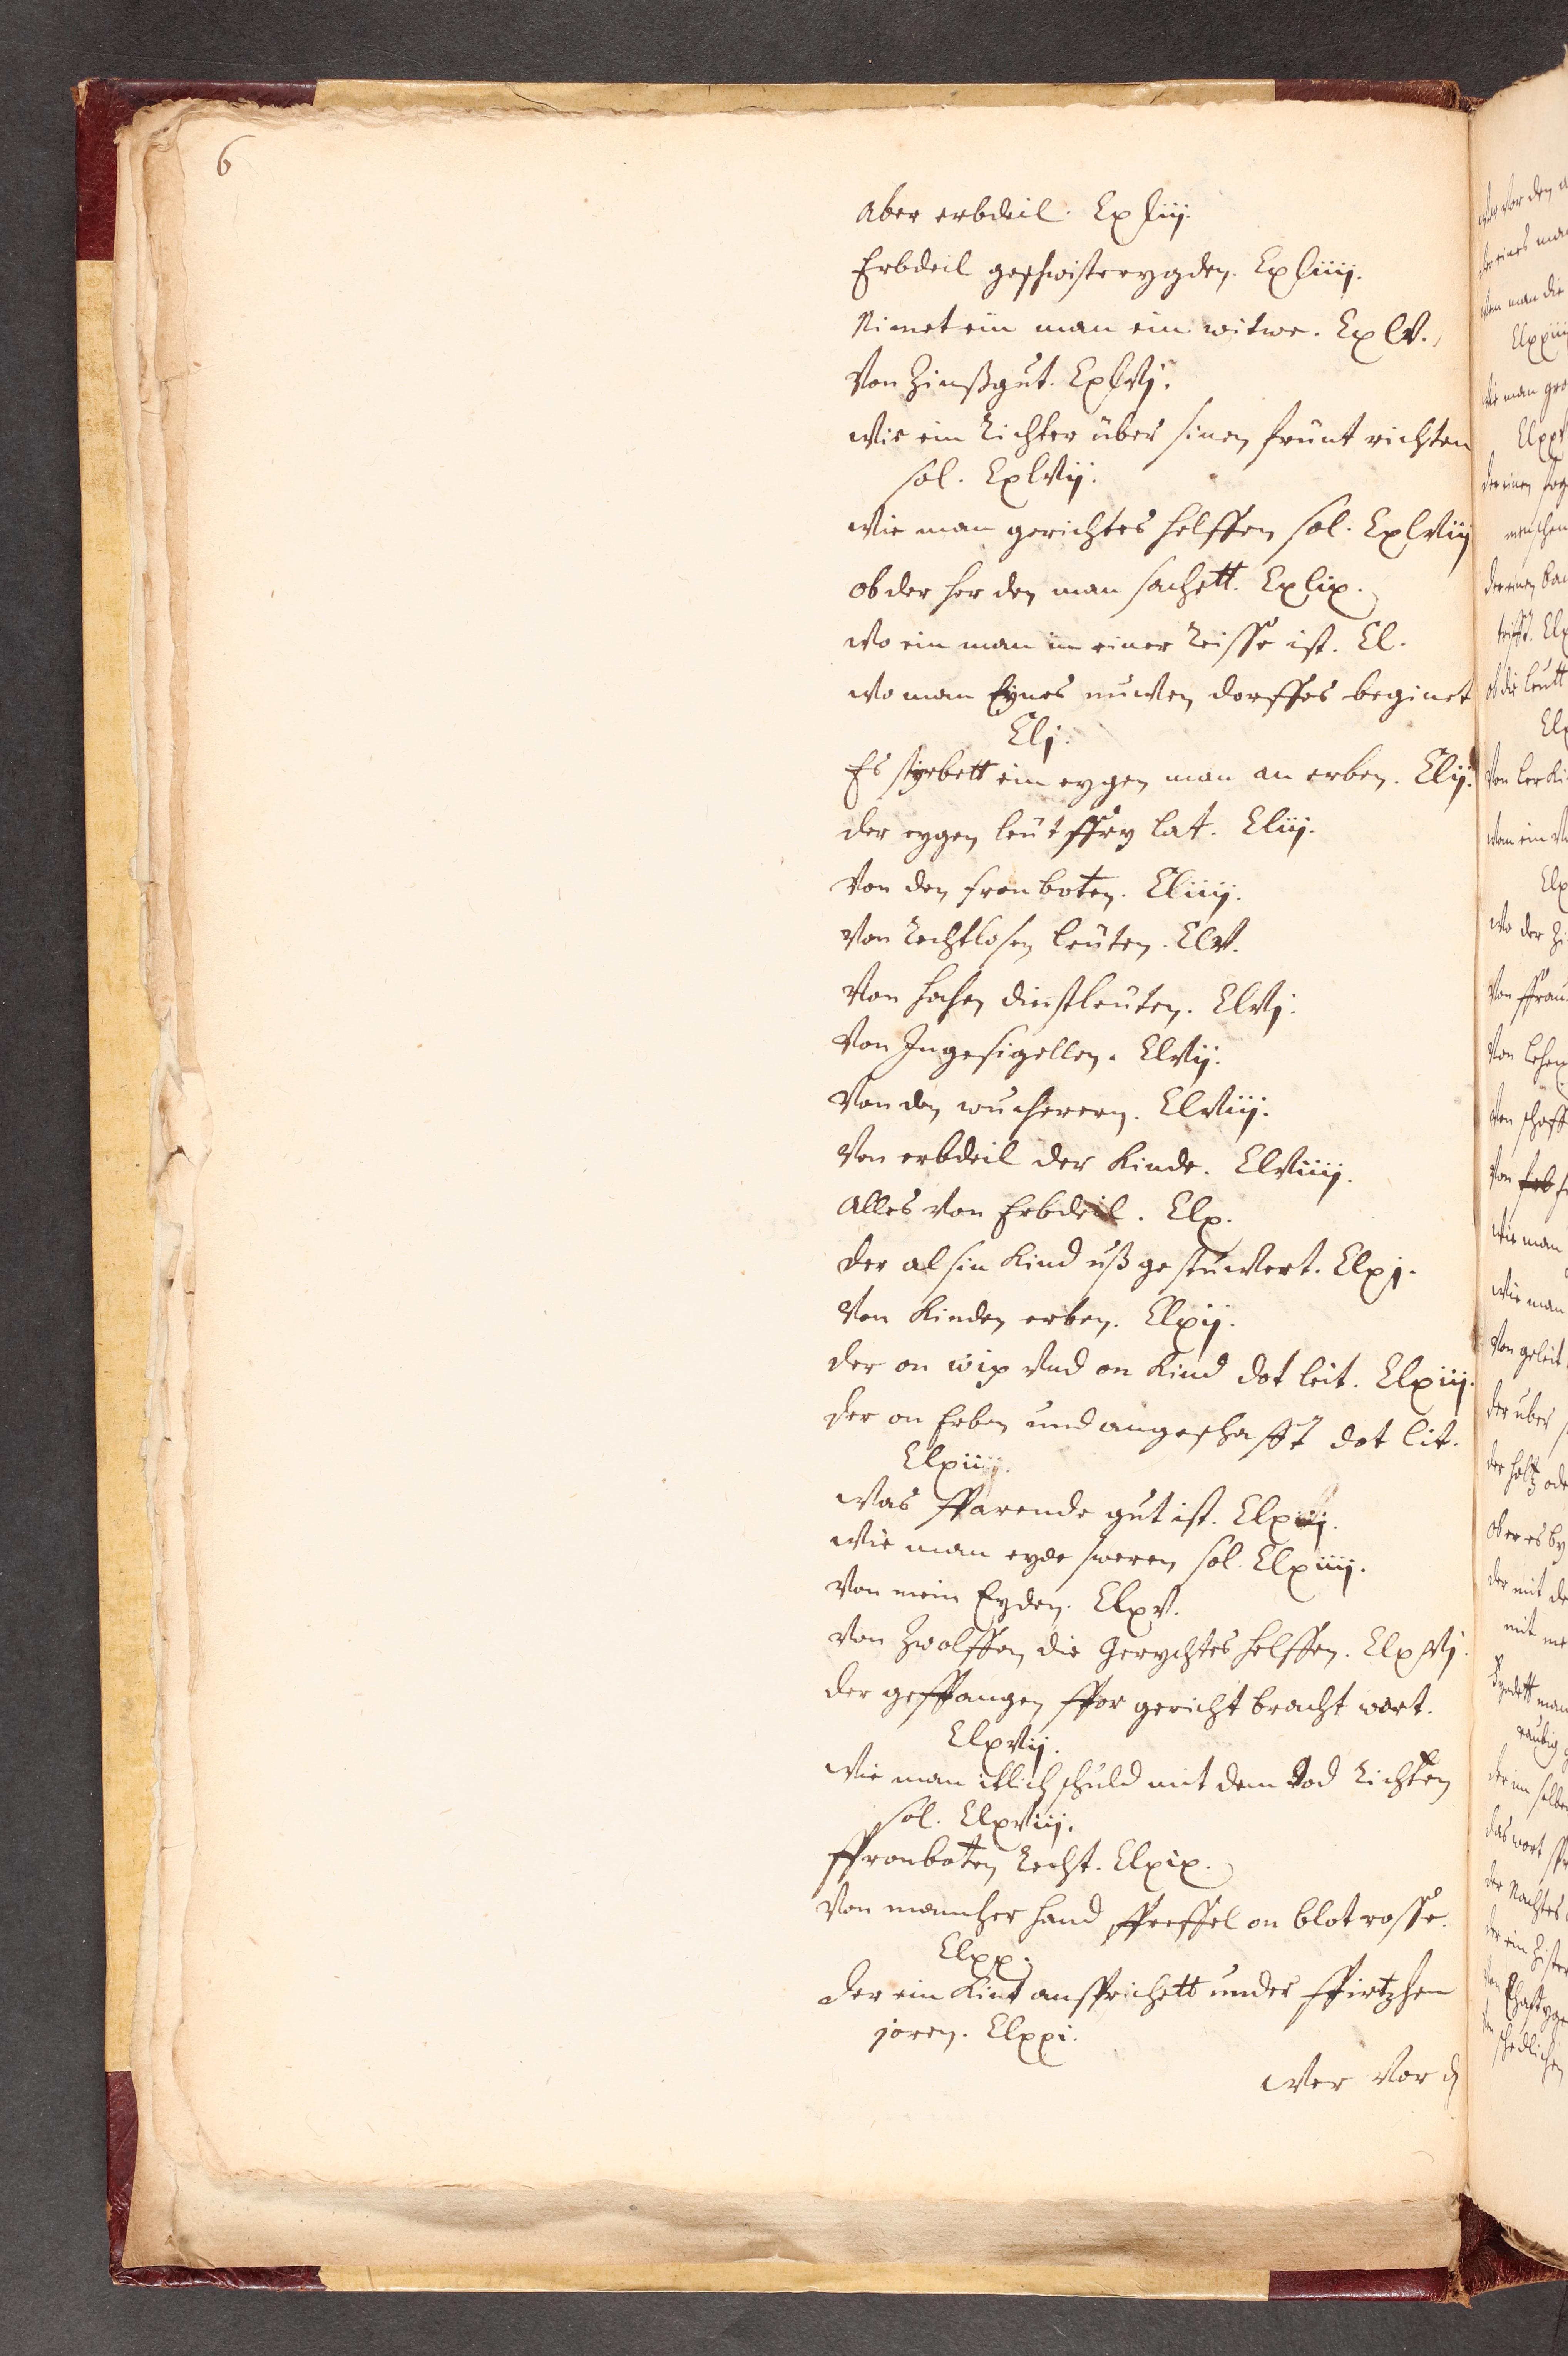 6
Aber erbdeil. Cxliij.
Erbdeil geschwisterygden. Cxliiij.
Nimet ein man ein witwe. Cxlv.
Von Zinßgut. Cxlvj.
Wie ein Richter über sinen frunt richten
sol. Cxlvij.
Wie man gerichtes helffen sol. Cxlviij
ob der her den man sachett. Cxlix.
Wo ein man in einer Reisse ist. Cl.
Wo man Eynes nuwen dorffes beginet
Clj.
Es styrbett ein eygen man an erben. Clij.
der eygen leut ffry lat. Cliij.
Von den fronboten. Cliiij.
Von Rechtlosen leuten. Clv.
Von hohen dinstleuten. Clvj.
Von Ingesigellen. Clvij.
Von den wucherern. Clviij.
Von erbdeil der Kinde. Clviiij.
Alles von Erbdeil. Clx.
der al sin Kind uß gestuwert. Clxj.
Von Kinden erben. Clxij.
der on wip und on Kind dot leit. Clxiij.
der on Erben und angeschafft dot lit.
Clxiiij.
Was ffarende gut ist. Clxiij.
Wie man eyde sweren sol. Clxiiij.
Von mein Eyden. Clxv.
Von Zwolffen die Gerychtes helffen. Clxvj.
der geffangen ffor gericht bracht wort.
Clxvij.
Wie man itlich schuld mit dem Dod Richten
sol. Clxviij.
ffronboten Recht. Clxix.
Von mancher hand ffreffel on blotrosse.
Clxx.
der ein Kint ansprichett under ffirtzhen
joren. Clxxi.
Wer vor d